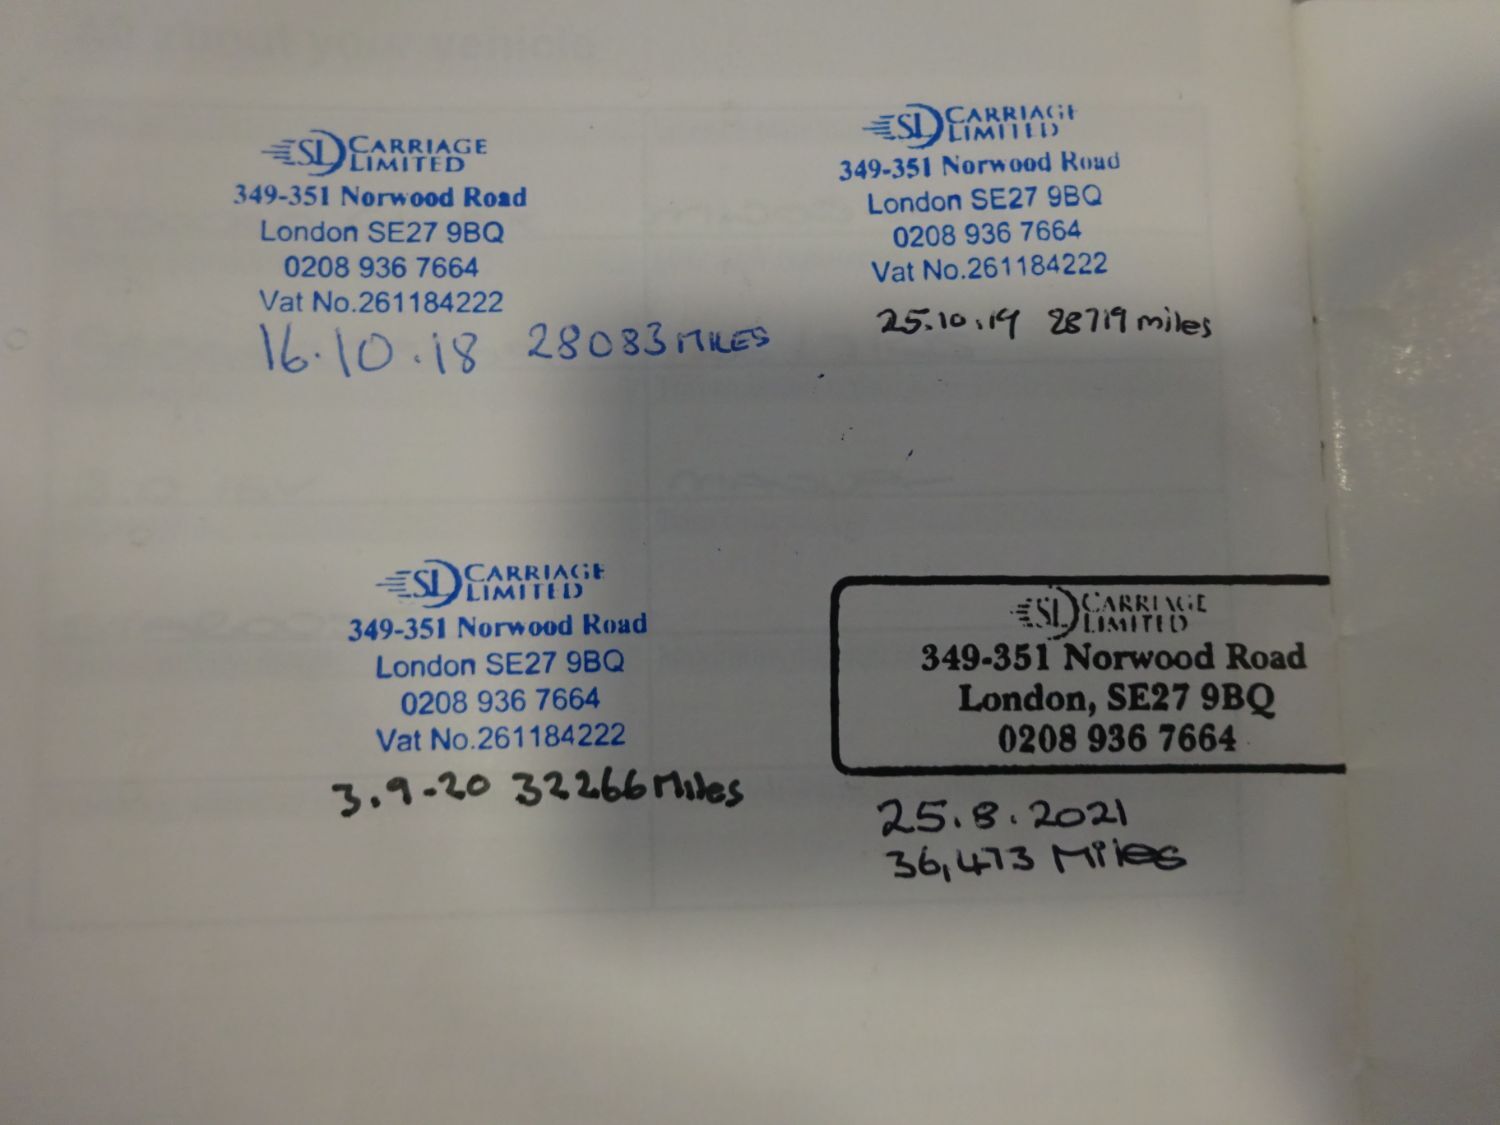 SL CARRIAGE
LIMITED
349-351 Norwood Road
London SE27 9BQ
0208 936 7664
Vat No.261184222
16.10.18 28083 MILES
SL CARRIAGE
LIMITED
349-351 Norwood Road
London SE27 9BQ
0208 936 7664
Vat No.261184222
25.10.19 28719 miles
SL CARRIAGE
LIMITED
349-351 Norwood Road
London SE27 9BQ
0208 936 7664
Vat No.261184222
3.9.20 32266 Miles
SL CARRIAGE
LIMITED
349-351 Norwood Road
London, SE27 9BQ
0208 936 7664
25.8.2021
36,473 Miles